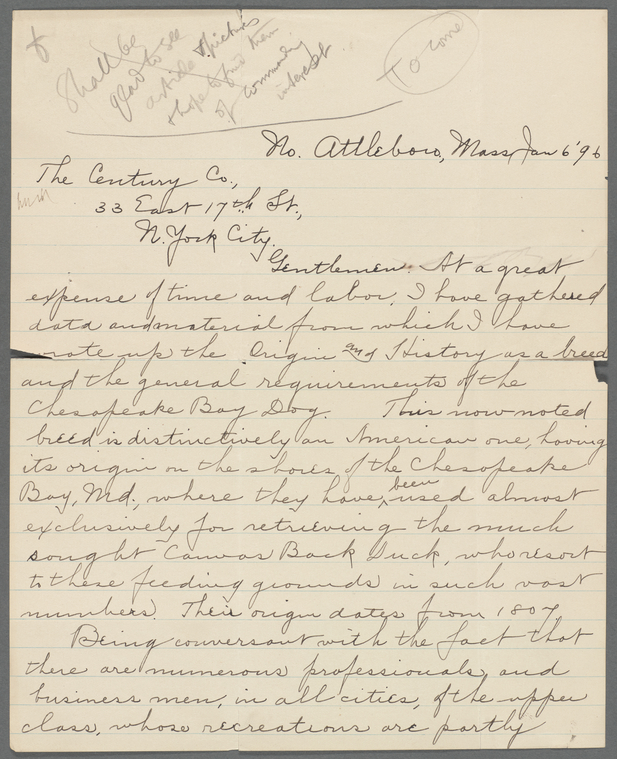 Shall be
glad to see
article & pictures
& hope to find them
of commanding
interest
To come
No. Attleboro, Mass, Jan 6 '96
The Century Co.,
33 East 17th St.,
N. York City.
Gentlemen. At a great
expense of time and labor, I have gathered
data and material from which I have
wrote up the Origin and History as a breed
and the general requirements of the
Chesapeake Bay Dog. This now noted
breed is distinctively an American one, having
its origin on the shores of the Chesapeake
Bay, Md., where they have been used almost
exclusively for retrieving the much
sought Canvas Back Duck, who resort
to these feeding grounds in such vast
numbers. Their origin dates from 1807
Being conversant with the fact that
there are numerous professionals, and
business men, in all cities, of the upper
class, whose recreations are partly